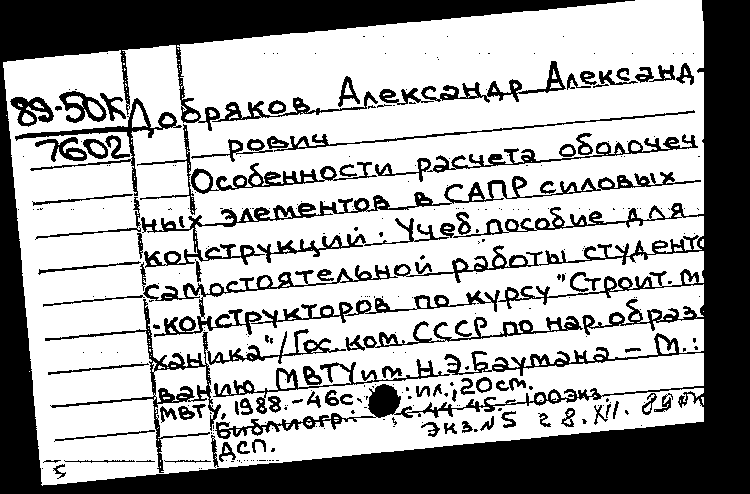 89-50К Добряков, Александр Александ-
7602 рович
Особенности расчета оболочеч
ных элементов в САПР силовых
конструкций: Учеб. пособие для
самостоятельной работы студенто
-конструкторов по курсу "Строит. ме
ханика"/Гос. ком. СССР по нар. образо
ванию, МВТУ им. Н.Э. Баумана – М.:
МВТУ, 1988. - 46с. : ил.; 20 cm.
Библиогр.: с. 44-45. - 100 экз.
ДСП. экз. N 5 28.XII.89
5